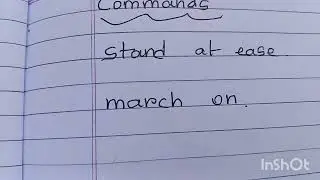 Commands
stand at ease.
march on.
InShOt